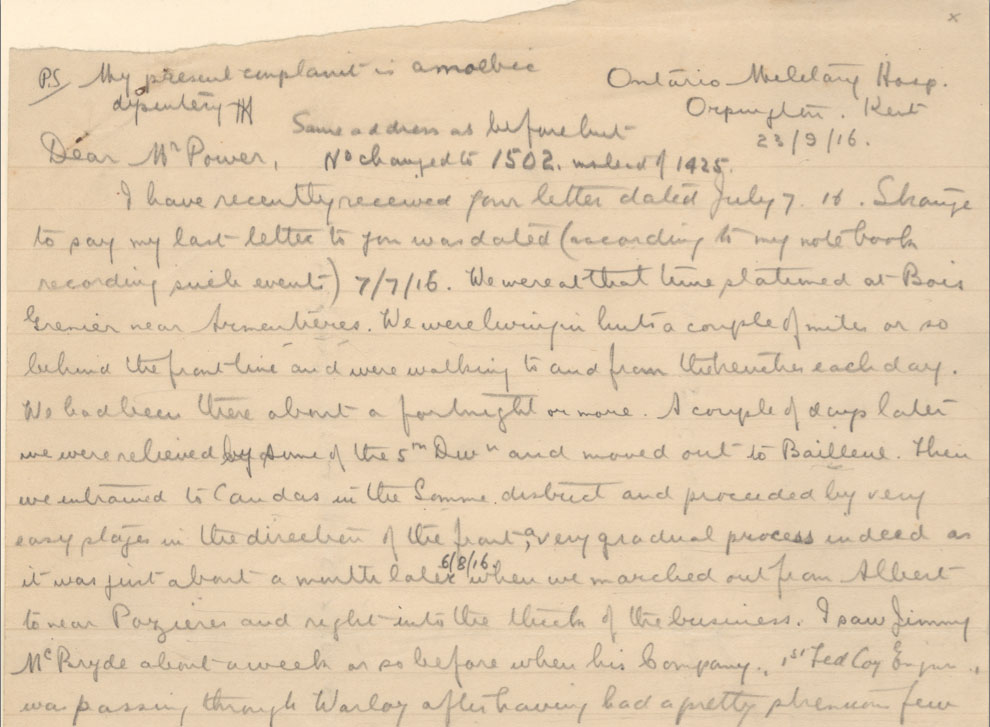 x
PS My present complaint is amoebic
dysentery
Ontario Military Hosp.
Orpington. Kent
23/9/16.
Same address as before but
No changed to 1502. instead of 1425.
Dear Mr Power,
I have recently received your letter dated July 7. 16. Strange
to say my last letter to you was dated (according to my note book
recording such events) 7/7/16. We were at that time stationed at Bois
Grenier near Armentières. We were living in huts a couple of miles or so
behind the front line and were walking to and from the trenches each day.
We had been there about a fortnight or more. A couple of days later
we were relieved by some of the 5th Divn and moved out to Bailleul. Then
we entrained to Candas in the Somme district and proceeded by very
easy stages in the direction of the front, a very gradual process indeed as
it was just about a month later 6/8/16 when we marched out from Albert
to near Pozieres and right into the thick of the business. I saw Jimmy
McBryde about a week or so before when his Company, 1st Fed Coy Engnr.,
was passing through Warloy after having had a pretty strenuous few